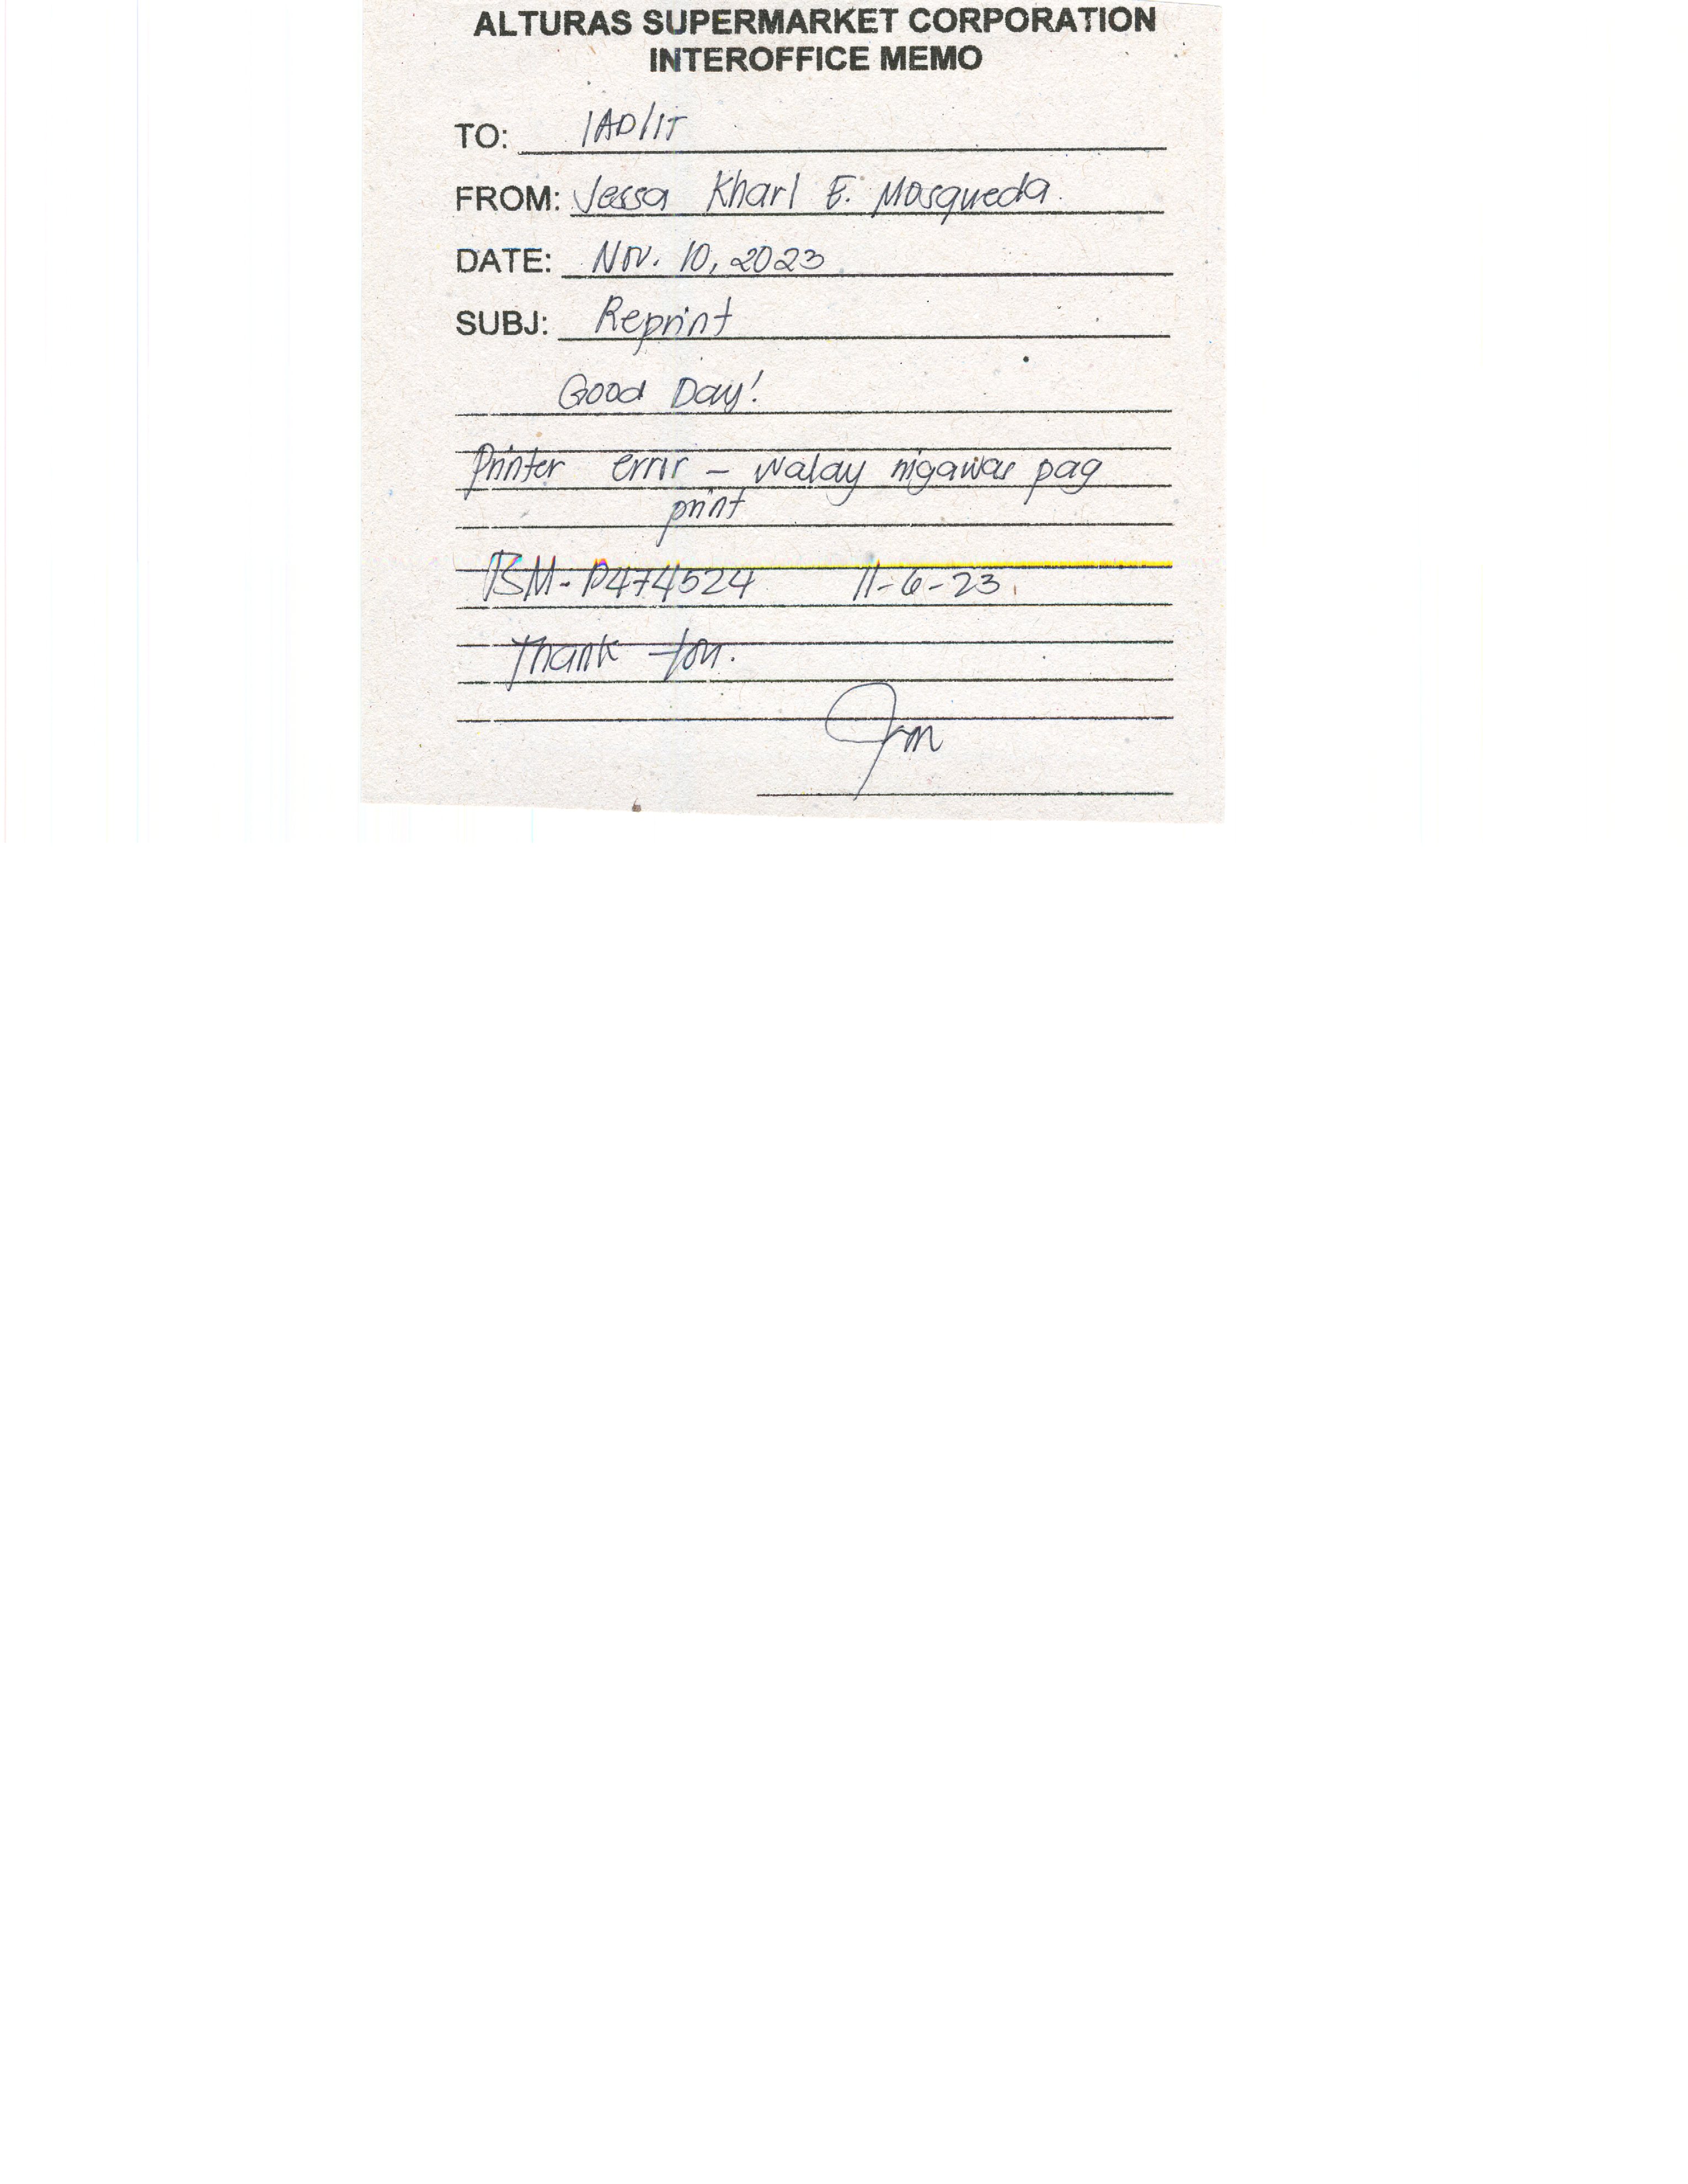 ALTURAS SUPERMARKET CORPORATION
INTEROFFICE MEMO
TO: IAD/IT
FROM: Jessa Kharl E. Mosqueda.
DATE: Nov. 10, 2023
SUBJ: Reprint
Good Day!
Printer error - walay nigawas pag
print
BSM- P474524 11-6-23
Thank You.